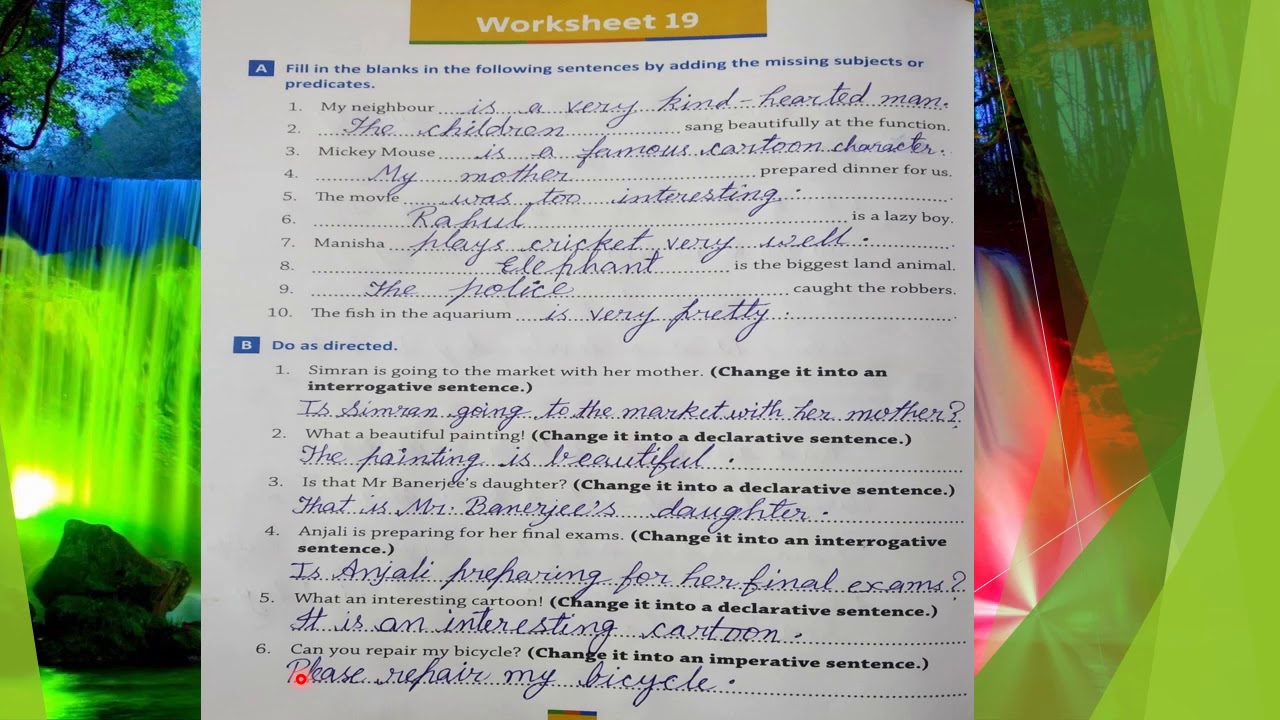 Worksheet 19
A Fill in the blanks in the following sentences by adding the missing subjects or
predicates.
1. My neighbour is a very kind-hearted man.
2. The children sang beautifully at the function.
3. Mickey Mouse is a famous cartoon character.
4. My mother prepared dinner for us.
5. The movie was too interesting.
6. Rahul is a lazy boy.
7. Manisha plays cricket very well.
8. Elephant is the biggest land animal.
9. The police caught the robbers.
10. The fish in the aquarium is very pretty.
B Do as directed.
1. Simran is going to the market with her mother. (Change it into an
interrogative sentence.)
Is Simran going to the market with her mother?
2. What a beautiful painting! (Change it into a declarative sentence.)
The painting is beautiful.
3. Is that Mr Banerjee's daughter? (Change it into a declarative sentence.)
That is Mr. Banerjee's daughter.
4. Anjali is preparing for her final exams. (Change it into an interrogative
sentence.)
Is Anjali preparing for her final exams?
5. What an interesting cartoon! (Change it into a declarative sentence.)
It is an interesting cartoon.
6. Can you repair my bicycle? (Change it into an imperative sentence.)
Please repair my bicycle.